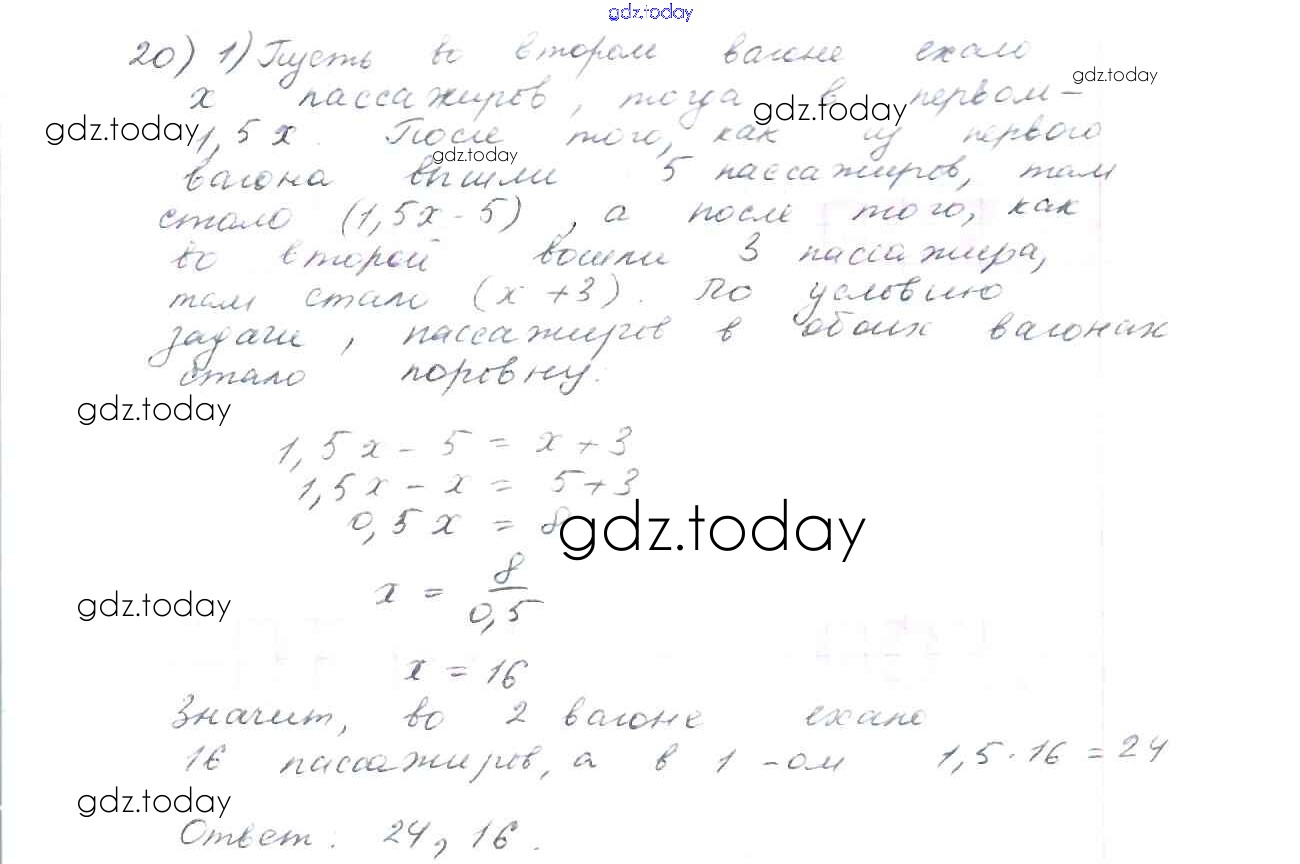 gdz.today
20) 1) Пусть во втором вагоне ехало
gdz.today
x пассажиров, тогда в первом –
gdz.today
gdz.today
1,5x. После того, как из первого
gdz.today
вагона вышли 5 пассажиров, там
стало (1,5x - 5), а после того, как
во второй вошли 3 пассажира,
там стало (x + 3). По условию
задачи, пассажиров в обоих вагонах
стало поровну.
gdz.today
1,5x - 5 = x + 3
1,5x - x = 5 + 3
0,5x = 8
gdz.today
x = 8/0,5
gdz.today
x = 16
Значит, во 2 вагоне ехало
16 пассажиров, а в 1-ом 1,5 · 16 = 24
gdz.today
Ответ: 24, 16.